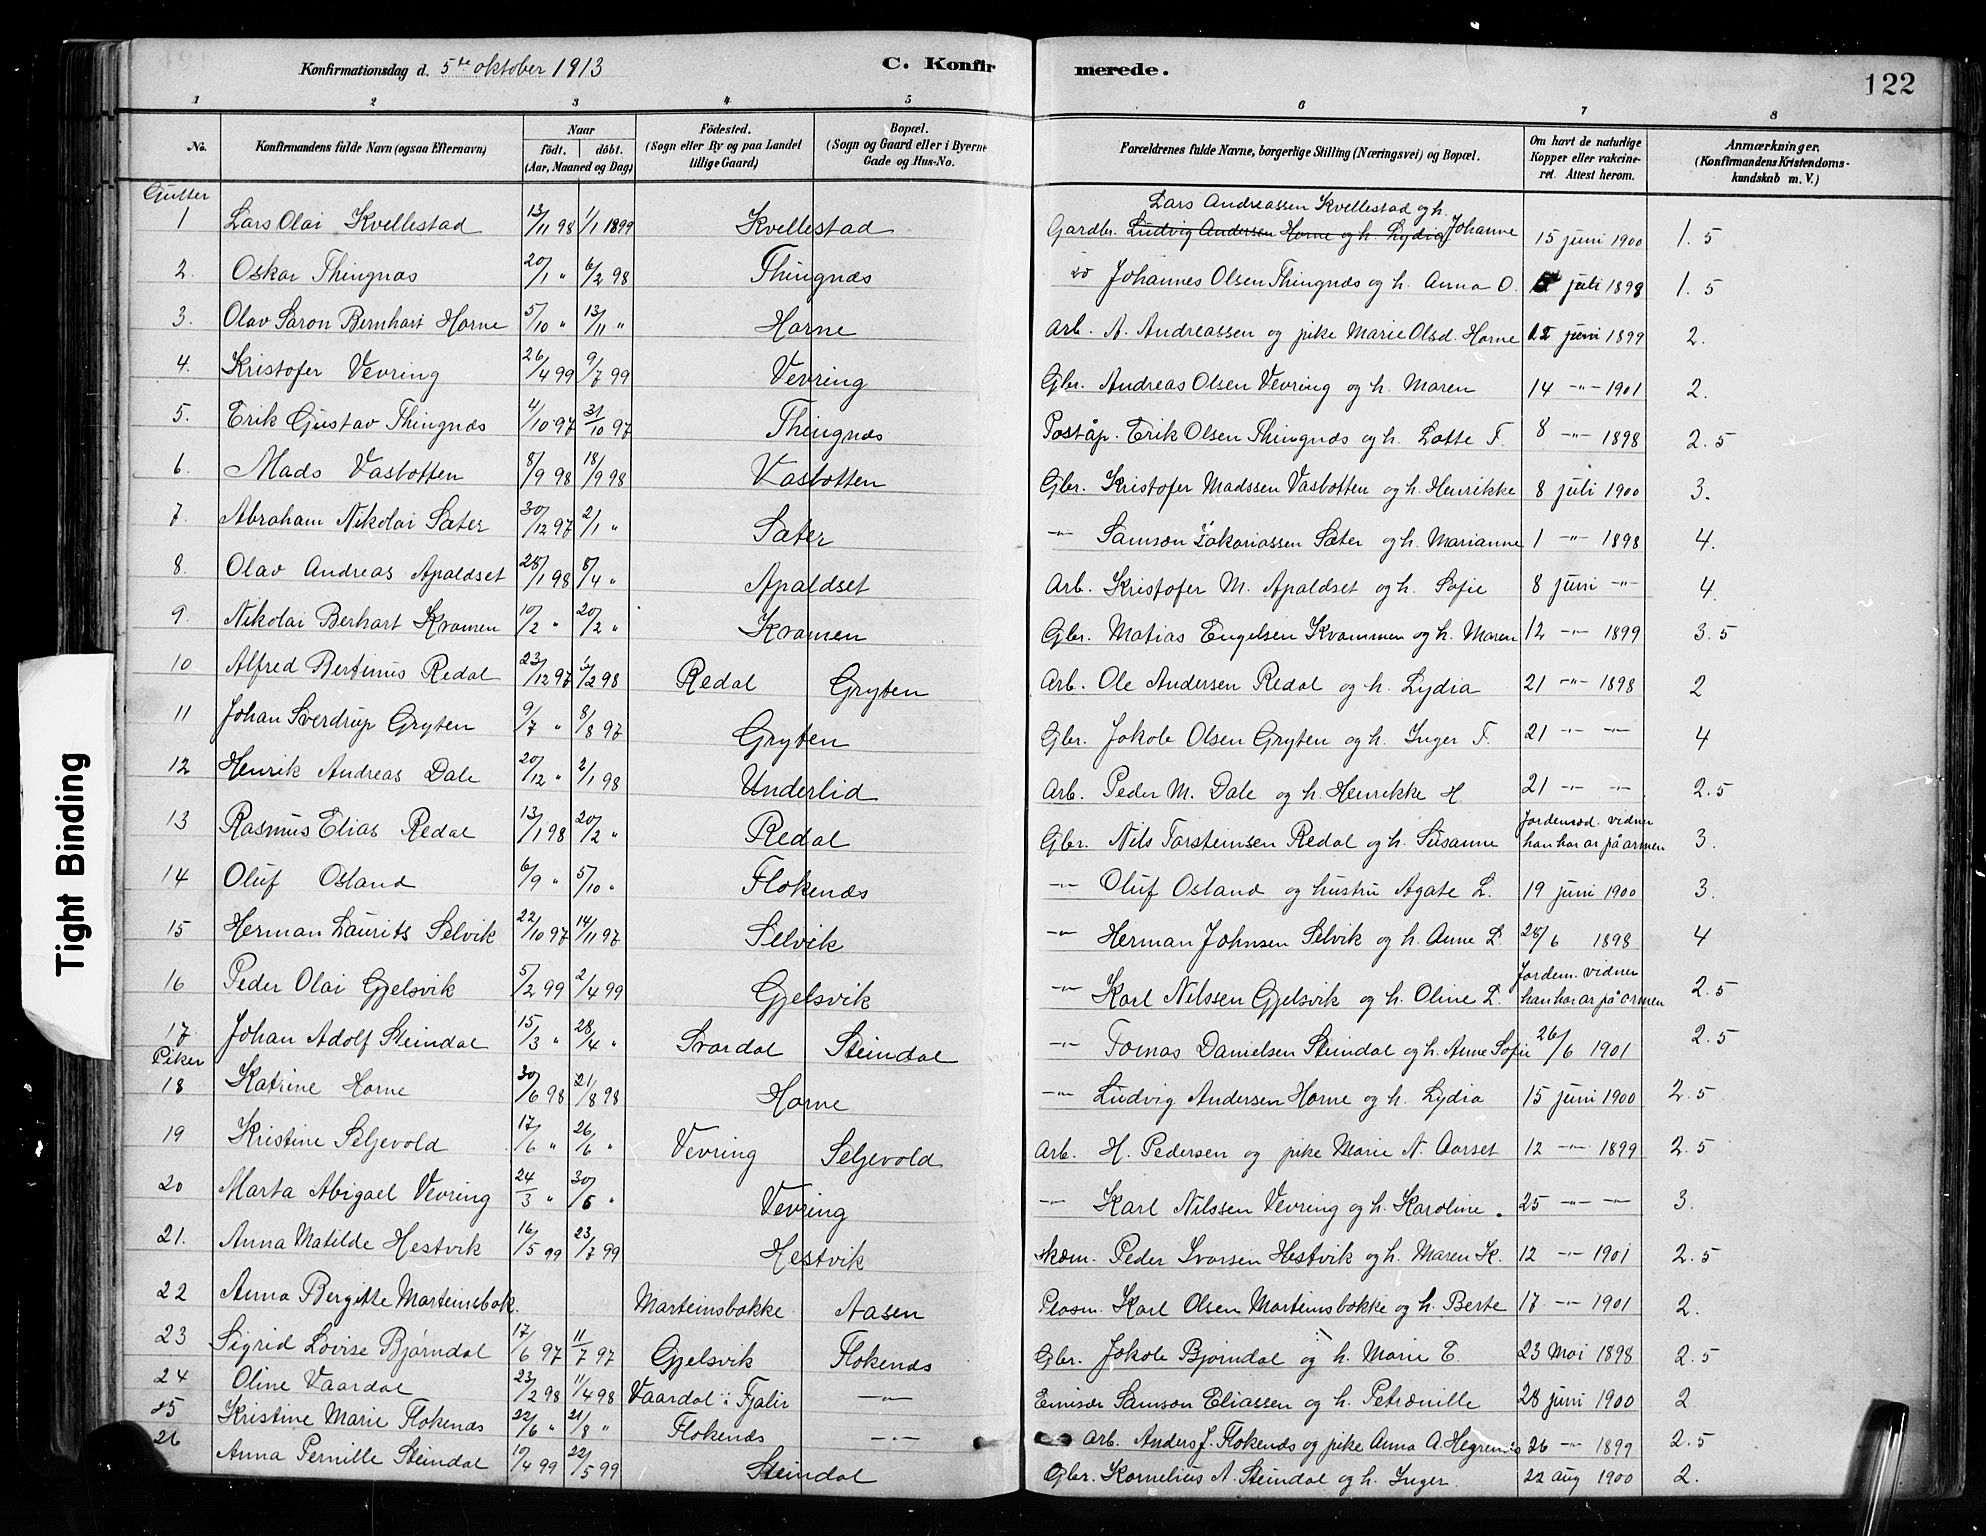 Konfirmationsdag d. 5te oktober 1913 C. Konfirmerede. 122
1 2 3 4 5 6 7 8
No. Konfirmandens fulde Navn (ogsaa Efternavn) Naar födt. döbt. (Aar, Maaned og Dag) Födested. (Sogn eller By og paa Landet tillige Gaard) Bopæl. (Sogn og Gaard eller i Byerne Gade og Hus-No. Forældrenes fulde Navne, borgerlige Stilling (Næringsvei) og Bopæl. Om havt de naturlige Kopper eller vakcineret. Attest herom. Anmærkninger. (Konfirmandens Kristendomskundskab m. V.)
Gutter
Lars Andreassen Kvellestad og h.
1 Lars Olai Kvellestad 13/11 98 1/1 1899 Kvellestad Gardbr. Ludvig Andersen Horne og h. Lydia Johanne 15 juni 1900 1.5
2. Oskar Thingnæs 20/1 " 6/2 98 Thingnæs do Johannes Olsen Thingnæs og h. Anna O. juli 1898 1.5
3. Olav Saron Bernhart Horne 5/10 " 13/11 " Horne Arb. A. Andreassen og pike Marie Olsd. Horne 12 juni 1899 2.
4. Kristofer Vevring 26/4 99 9/7 99 Vevring Gbr. Andreas Olsen Vevring og h. Maren 14 -"- 1901 2.
5. Erik Gustav Thingnæs 4/10 97 31/10 97 Thingnæs Poståp. Erik Olsen Thingnæs og h. Lotte F. 8 -"- 1898 2.5
6. Mads Vasbotten 8/9 98 18/9 98 Vasbotten Gbr. Kristofer Madssen Vasbotten og h. Henrikke 8 juli 1900 3.
7. Abraham Nikolai Sæter 30/12 97 2/1 " Sæter -"- Samson Zakariassen Sæter og h. Marianne 1 -"- 1898 4.
8. Olav Andreas Apaldset 28/1 98 8/4 " Apaldset Arb. Kristofer M. Apaldset og h. Sofie 8 juni -"- 4.
9. Nikolai Berhart Kvamen 10/2 " 20/2 " Kvamen Gbr. Matias Engelsen Kvammen og h. Maren 12 -"- 1899 3.5
10 Alfred Bertinus Redal 23/12 97 /2 98 Redal Gryten Arb. Ole Andersen Redal og h. Lydia 21 -"- 1898 2
11 Johan Sverdrup Gryten 9/7 " 8/8 97 Gryten Gbr. Jakob Olsen Gryten og h. Inger F. 21 -"- -"- 4
12 Henrik Andreas Dale 20/12 " 2/1 98 Underlid Arb. Peder M. Dale og h. Henrikke H. 21 -"- -"- 2.5
13 Rasmus Elias Redal 13/1 98 20/2 " Redal Gbr. Nils Torsteinsen Redal og h. Susanne Jordemod. vidner han har ar på armen 3.
14 Oluf Osland 6/9 " 5/10 " Flokenæs -"- Oluf Osland og hustru Agate L. 19 juni 1900 3.
15 Herman Laurits Selvik 22/10 97 14/11 97 Selvik -"- Herman Johnsen Selvik og h. Anne L. 28/6 1898 4
16 Peder Olai Gjelsvik 5/2 99 2/4 99 Gjelsvik -"- Karl Nilssen Gjelsvik og h. Oline L. Jordem. vidner han har ar på armen 2.5
17 Johan Adolf Steindal 15/3 " 28/4 " Svardal Steindal -"- Tomas Danielsen Steindal og h. Anne Sofie 26/6 1901 2.5
Piker
18 Katrine Horne 30/6 98 21/8 98 Horne -"- Ludvig Andersen Horne og h. Lydia 15 juni 1900 2.5
19 Kristine Seljevold 17/6 " 26/6 " Vevring Seljevold Arb. H. Pedersen og pike Marie N. Aarset 12 -"- 1899 2.5
20 Marta Abigael Vevring 24/3 " 30/5 " Vevring -"- Karl Nilssen Vevring og h. Karoline. 25 -"- -"- 3.
21. Anna Matilde Hestvik 16/5 99 23/7 99 Hestvik skom. Peder Ivarsen Hestvik og h. Maren K. 12 -"- 1901 2.5
22 Anna Bergitte Marteinsbok. Marteinsbakke Aasen Plasm. Karl Olsen Marteinsbakke og h. Berte 17 -"- 1901 2.
23 Sigrid Lovise Bjørndal 17/6 97 11/7 97 Gjelsvik Flokenæs Gbr. Jakob Bjørndal og h. Marie E. 23 Mai 1898 2.5
24 Oline Vaardal 23/2 98 11/4 98 Vaardal i Fjaler -"- Emisær Samson Eliassen og h. Petronille 28 juni 1900 2.
25 Kristine Marie Flokenæs 22/6 " 21/8 " Flokenæs -"- Arb. Anders J. Flokenæs og pike Anna A. Hegrenæs 26 -"- 1899 2.5
26 Anna Pernille Steindal 10/4 99 22/5 99 Steindal Gbr. Kornelius A. Steindal og h. Inger 22 aug 1900 2.
Tight Binding